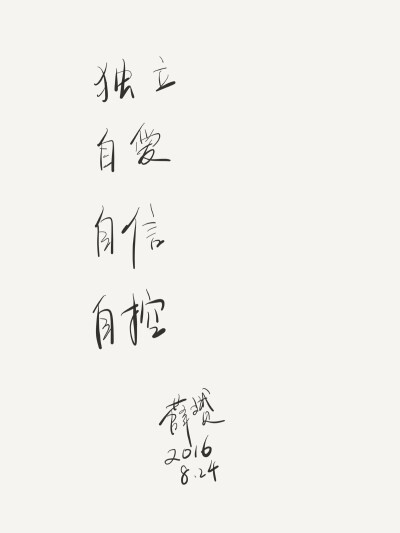 独立
自爱
自信
自控
薛赟
2016
8.24